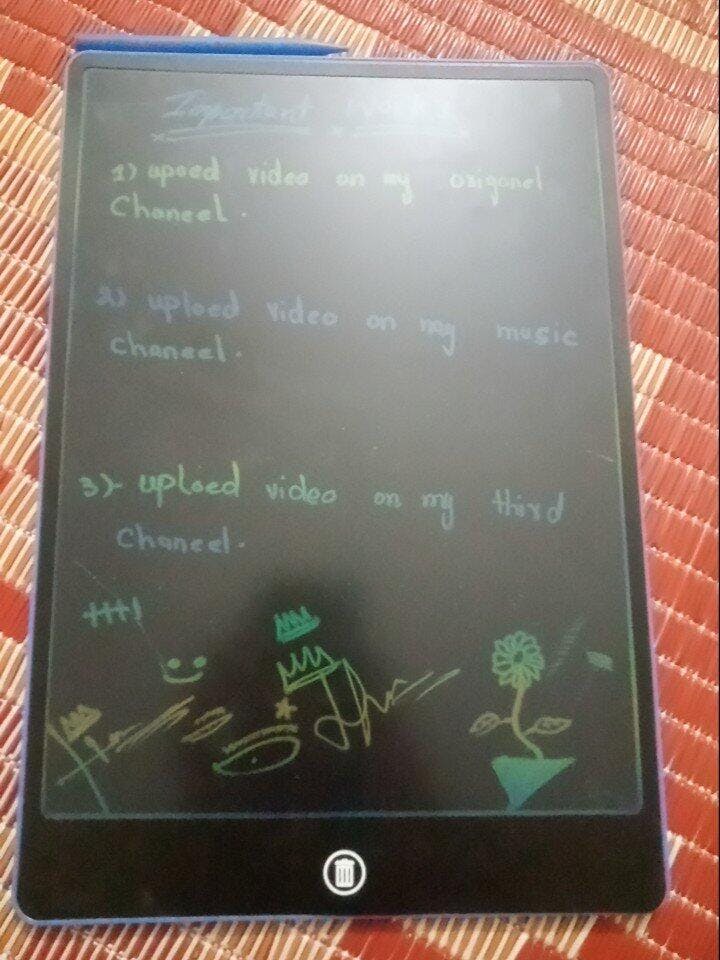 Important Works
1) upoed video on my osigonel
Chaneel.
2) uploed video on my music
chaneel.
3)- uploed video on my third
Chaneel.